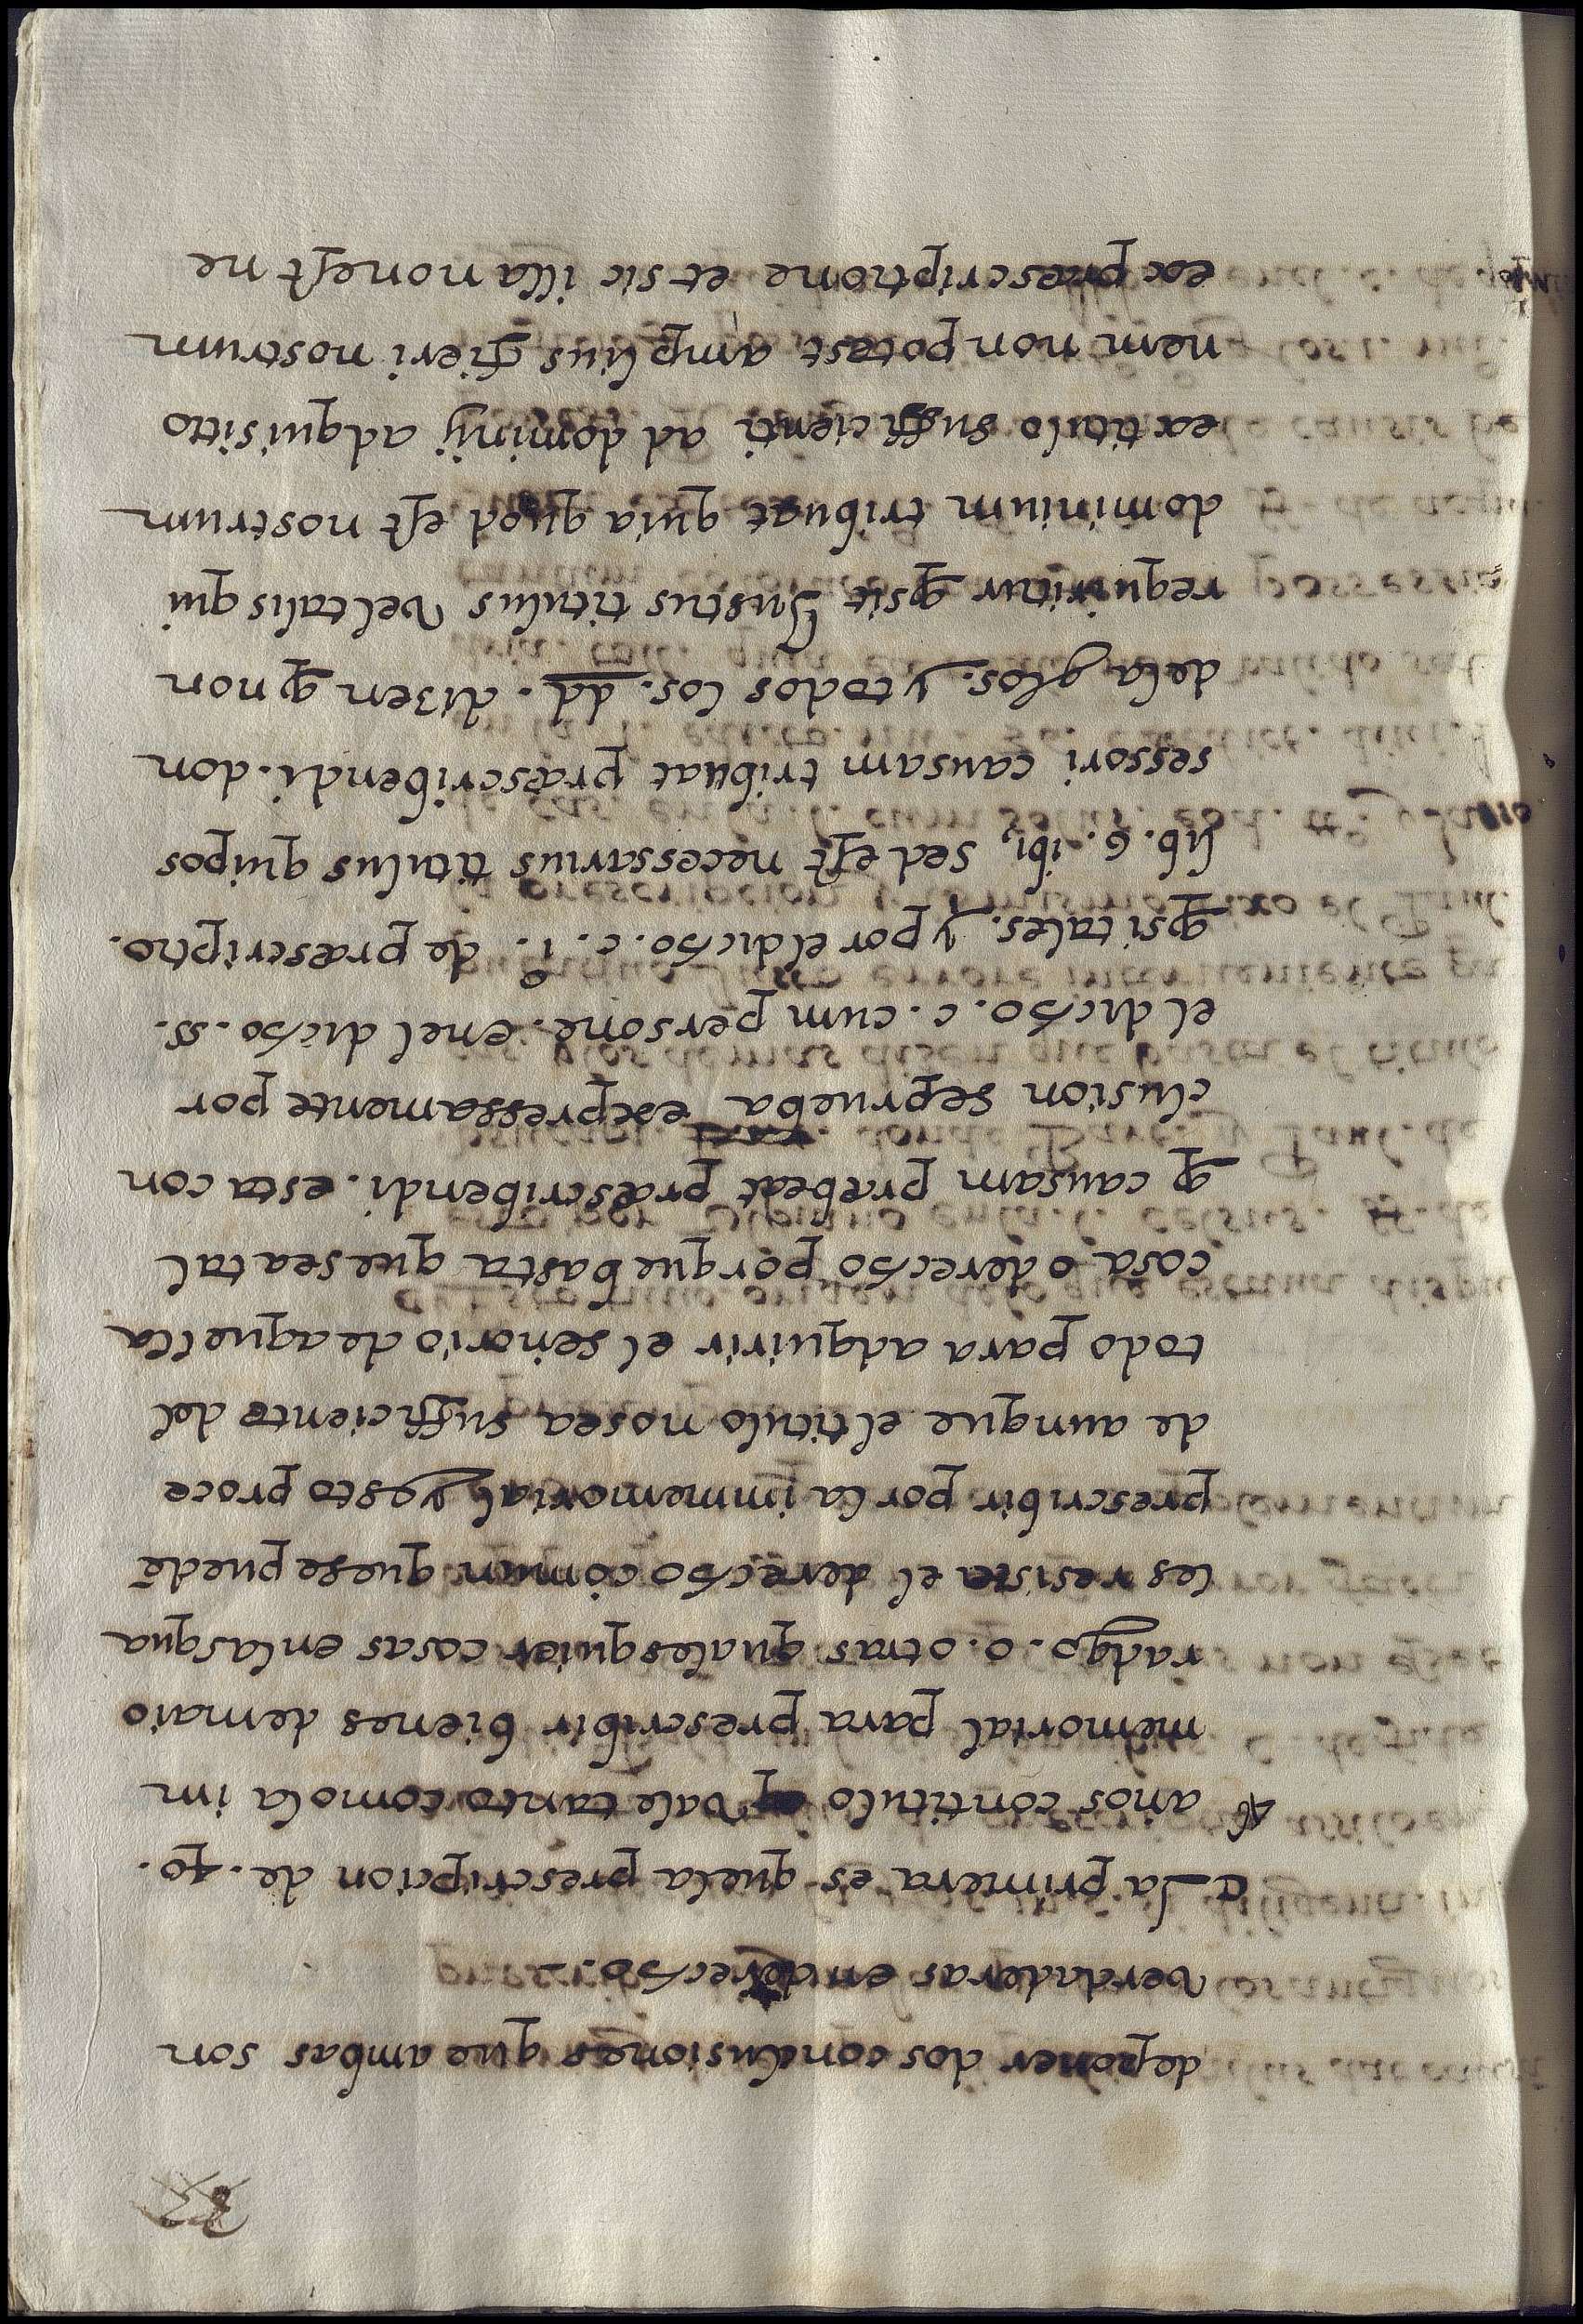 deponer dos conclusiones que ambas son
verdaderas en derecho.
La primera es quela prescripcion de .40.
años contitulo q̃ vale tanto comola im
memorial para prescribir bienes demaio
radgo. o. otras qualesquier cosas enlasqua
les resista el derecho comun quese puedē
prescribir porla immemorial y esto proce
de aunque eltitulo nosea sufficiente del
todo para adquirir el señorio deaquella
cosa o derecho porque basta que sea tal
q̃ causam præbeat præscribendi. esta con
clusion seprueba expressamente por
el dicho. c. cum persone. enel dicho. ss.
q̃ si tales. y por eldicho. c. 1.º de præscriptio.
lib. 6. ibi, sed est necessarius titulus quipos
sessori causam tribuat præscribendi. don
dela glos. y todos los. dd. dizen q̃ non
requiritur q̃ sit Justus titulus vel talis qui
dominium tribuat quia quod est nostrum
ex titulo sufficienti ad dominij adquisitio
nem non potest amplius fieri nostrum
ex præscriptione et sic illa non est ne